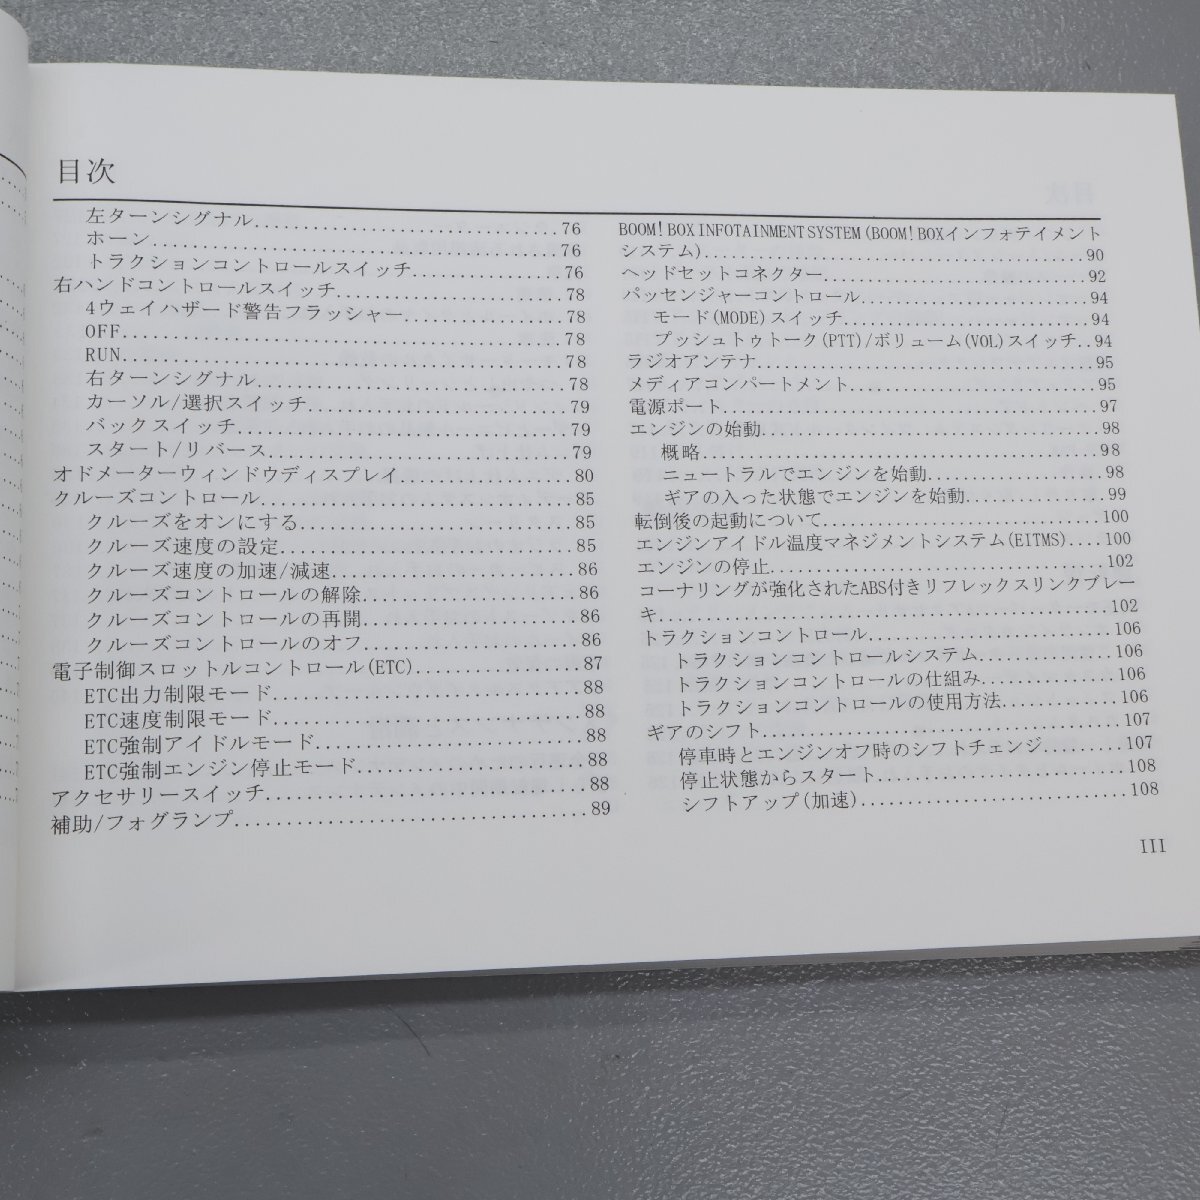 目次
左ターンシグナル..............................76
ホーン........................................76
トラクションコントロールスイッチ..............76
右ハンドコントロールスイッチ..................78
4ウェイハザード警告フラッシャー..............78
OFF..........................................78
RUN..........................................78
右ターンシグナル..............................78
カーソル/選択スイッチ........................79
バックスイッチ................................79
スタート/リバース............................79
オドメーターウィンドウディスプレイ............80
クルーズコントロール..........................85
クルーズをオンにする..........................85
クルーズ速度の設定............................85
クルーズ速度の加速/減速......................86
クルーズコントロールの解除....................86
クルーズコントロールの再開....................86
クルーズコントロールのオフ....................86
電子制御スロットルコントロール(ETC)..........87
ETC出力制限モード............................88
ETC速度制限モード............................88
ETC強制アイドルモード........................88
ETC強制エンジン停止モード....................88
アクセサリースイッチ..........................88
補助/フォグランプ............................89
BOOM! BOX INFOTAINMENT SYSTEM (BOOM! BOXインフォテイメント
システム)....................................90
ヘッドセットコネクター........................92
パッセンジャーコントロール....................94
モード(MODE)スイッチ........................94
プッシュトゥトーク(PTT)/ボリューム(VOL)スイッチ..94
ラジオアンテナ................................95
メディアコンパートメント......................95
電源ポート....................................97
エンジンの始動................................98
概略..........................................98
ニュートラルでエンジンを始動..................98
ギアの入った状態でエンジンを始動..............99
転倒後の起動について..........................100
エンジンアイドル温度マネジメントシステム(EITMS)....100
エンジンの停止................................102
コーナリングが強化されたABS付きリフレックスリンクブレー
キ............................................102
トラクションコントロール......................106
トラクションコントロールシステム..............106
トラクションコントロールの仕組み..............106
トラクションコントロールの使用方法............106
ギアのシフト..................................107
停車時とエンジンオフ時のシフトチェンジ........107
停止状態からスタート..........................108
シフトアップ(加速)............................108
III